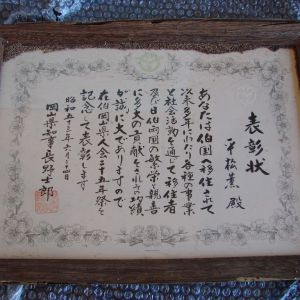 表彰状
平松薫 殿
あなたは伯国へ移住されて
以来多年にわたり各種の事業
と社会活動を通じて移住者
及び日伯両国の繁栄と親善
に多大の貢献をされその功績
が誠に大であります
在伯岡山県人会二十五年祭を
記念して表彰します
昭和五十三年六月二十四日
岡山県知事 長野士郎